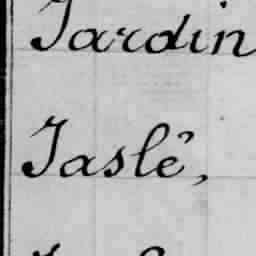 Jardin
Jaslê,